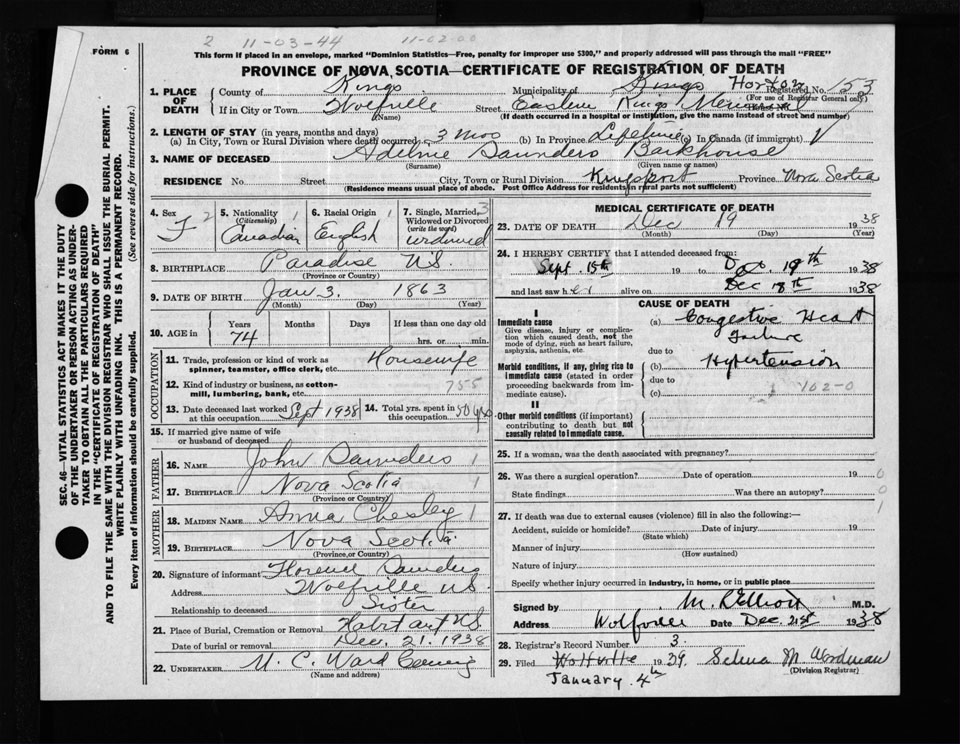 2 11-03-44 11-02-00
FORM 6
This form if placed in an envelope, marked "Dominion Statistics—Free, penalty for improper use $300," and properly addressed will pass through the mail "FREE"
PROVINCE OF NOVA SCOTIA—CERTIFICATE OF REGISTRATION OF DEATH
1. PLACE OF DEATH County of Kings Municipality of Kings Horton Registered No. 153
(For use of Registrar General only)
If in City or Town Wolfville Street Eastern Kings Memorial
(Name) (If death occurred in a hospital or institution, give the name instead of street and number)
2. LENGTH OF STAY (in years, months and days)
(a) In City, Town or Rural Division where death occurred 3 mos (b) In Province Lifetime (c) In Canada (if immigrant)
3. NAME OF DECEASED Saunders Barkhouse
(Surname) (Given name or names)
RESIDENCE No. Street City, Town or Rural Division Kingsport Province Nova Scotia
(Residence means usual place of abode. Post Office Address for residents in rural parts not sufficient)
4. Sex F 2
5. Nationality (Citizenship) 1 Canadian
6. Racial Origin 1 English
7. Single, Married, Widowed or Divorced (write the word) 3 widowed
8. BIRTHPLACE Paradise N.S.
(Province or Country)
9. DATE OF BIRTH Jan 3. 1863
(Month) (Day) (Year)
10. AGE in Years Months Days If less than one day old
74 hrs. or min.
OCCUPATION
11. Trade, profession or kind of work as spinner, teamster, office clerk, etc. Housewife
12. Kind of industry or business, as cotton-mill, lumbering, bank, etc. 755
13. Date deceased last worked at this occupation Sept 1938 14. Total yrs. spent in this occupation 50 yrs
15. If married give name of wife or husband of deceased
FATHER
16. NAME John Saunders 1
17. BIRTHPLACE Nova Scotia 1
(Province or Country)
MOTHER
18. MAIDEN NAME Anna Chesley 1
19. BIRTHPLACE Nova Scotia
(Province or Country)
20. Signature of informant Florence Saunders
Address Wolfville N.S.
Relationship to deceased Sister
21. Place of Burial, Cremation or Removal Habitant N.S.
Date of burial or removal Dec. 21. 1938
22. UNDERTAKER W. C. Ward
(Name and address)
MEDICAL CERTIFICATE OF DEATH
23. DATE OF DEATH Dec 19 1938
(Month) (Day) (Year)
24. I HEREBY CERTIFY that I attended deceased from:
Sept. 15th 19 to Dec. 19th 1938
and last saw her alive on Dec 18th 1938
CAUSE OF DEATH
I
Immediate cause
Give disease, injury or complication which caused death, not the mode of dying, such as heart failure, asphyxia, asthenia, etc.
(a) Congestive Heart Failure
due to
Morbid conditions, if any, giving rise to immediate cause (stated in order proceeding backwards from immediate cause).
(b) Hypertension
due to
(c) 102-0
II
Other morbid conditions (if important) contributing to death but not causally related to immediate cause.
25. If a woman, was the death associated with pregnancy?
26. Was there a surgical operation? Date of operation 19 0
State findings Was there an autopsy? 0
27. If death was due to external causes (violence) fill in also the following:— 1
Accident, suicide or homicide? Date of injury 19
(State which)
Manner of injury
(How sustained)
Nature of injury
Specify whether injury occurred in industry, in home, or in public place
Signed by M. R. Elliott M.D.
Address Wolfville Date Dec. 21st 1938
28. Registrar's Record Number 3.
29. Filed Wolfville 1939. Selma M. Woodman
January 4th (Division Registrar)
SEC. 46—VITAL STATISTICS ACT MAKES IT THE DUTY
OF THE UNDERTAKER OR PERSON ACTING AS UNDER-
TAKER TO OBTAIN ALL THE PARTICULARS REQUIRED
IN THE "CERTIFICATE OF REGISTRATION OF DEATH"
AND TO FILE THE SAME WITH THE DIVISION REGISTRAR WHO SHALL ISSUE THE BURIAL PERMIT.
WRITE PLAINLY WITH UNFADING INK. THIS IS A PERMANENT RECORD.
Every item of information should be carefully supplied. (See reverse side for instructions.)